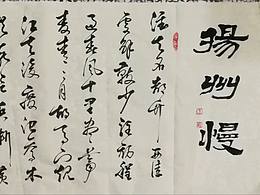 揚州慢
淮左名都竹西佳
處解鞍少駐初程
過春風十里盡薺
麥青青自胡馬窺
江去後廢池喬木
猶厭言兵漸黃